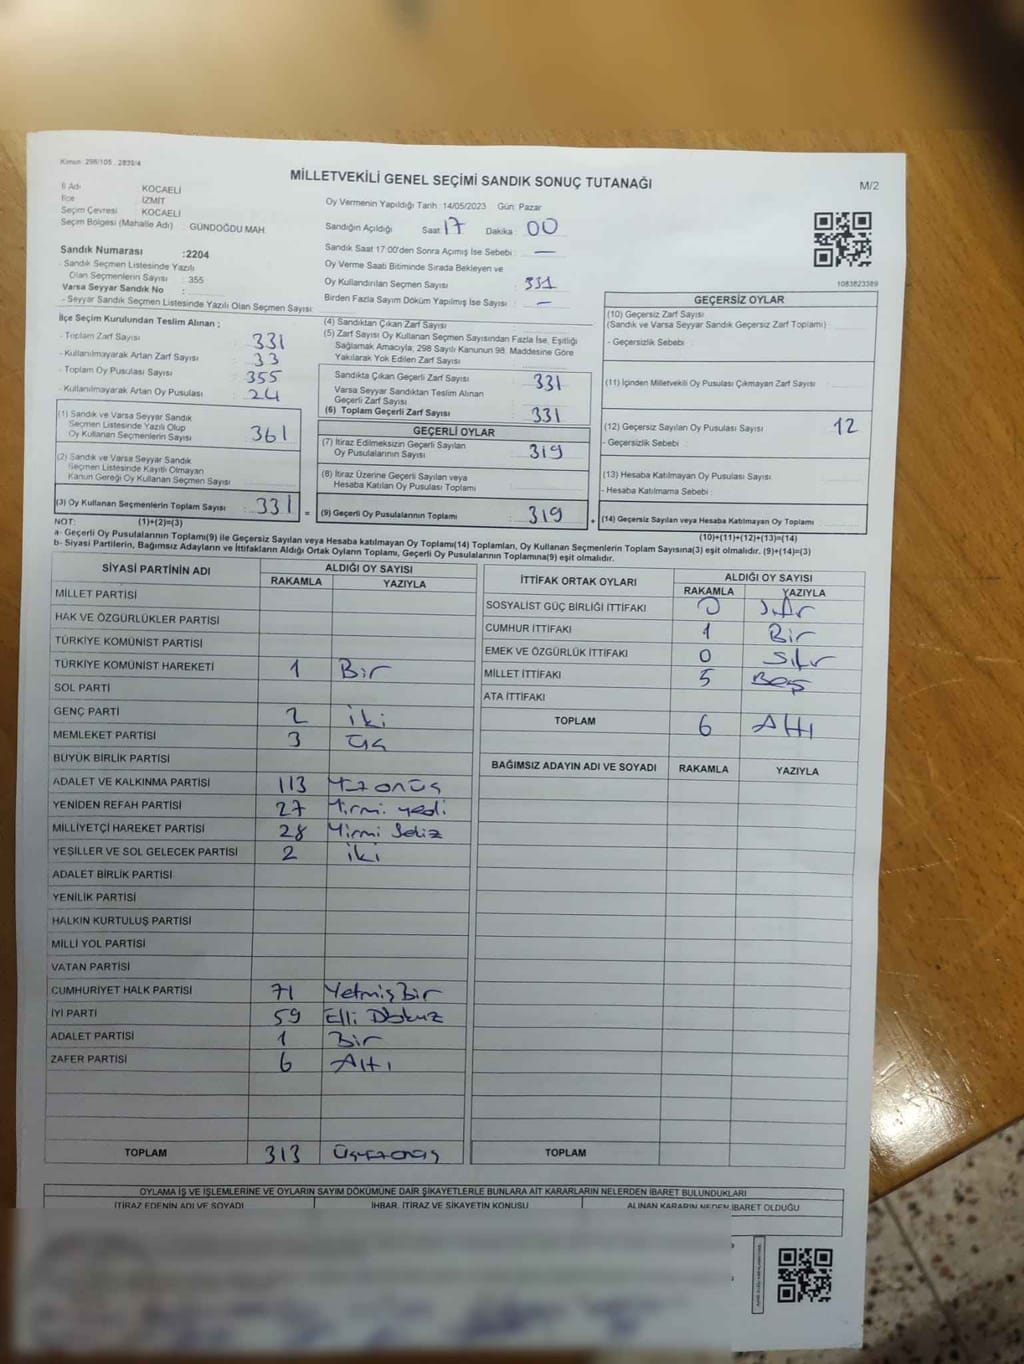 Kanun 298/105 , 2839/4
MİLLETVEKİLİ GENEL SEÇİMİ SANDIK SONUÇ TUTANAĞI
M/2
İl Adı KOCAELİ
İlçe İZMİT
Seçim Çevresi KOCAELİ
Seçim Bölgesi (Mahalle Adı) GÜNDOĞDU MAH.
Sandık Numarası :2204
- Sandık Seçmen Listesinde Yazılı
Olan Seçmenlerin Sayısı : 355
Varsa Seyyar Sandık No :
- Seyyar Sandık Seçmen Listesinde Yazılı Olan Seçmen Sayısı:
Oy Vermenin Yapıldığı Tarih :14/05/2023 Gün: Pazar
Sandığın Açıldığı Saat: 17 Dakika : 00
Sandık Saat 17:00'den Sonra Açılmış İse Sebebi : —
Oy Verme Saati Bitiminde Sırada Bekleyen ve
Oy Kullandırılan Seçmen Sayısı : 331
Birden Fazla Sayım Döküm Yapılmış İse Sayısı : —
1083823389
İlçe Seçim Kurulundan Teslim Alınan ;
- Toplam Zarf Sayısı : 331
- Kullanılmayarak Artan Zarf Sayısı : 33
- Toplam Oy Pusulası Sayısı : 355
- Kullanılmayarak Artan Oy Pusulası : 24
(1) Sandık ve Varsa Seyyar Sandık
Seçmen Listesinde Yazılı Olup
Oy Kullanan Seçmenlerin Sayısı : 361
(2) Sandık ve Varsa Seyyar Sandık
Seçmen Listesinde Kayıtlı Olmayan
Kanun Gereği Oy Kullanan Seçmen Sayısı :
(3) Oy Kullanan Seçmenlerin Toplam Sayısı : 331 =
(4) Sandıktan Çıkan Zarf Sayısı :
(5) Zarf Sayısı Oy Kullanan Seçmen Sayısından Fazla İse, Eşitliği
Sağlamak Amacıyla, 298 Sayılı Kanunun 98. Maddesine Göre
Yakılarak Yok Edilen Zarf Sayısı :
Sandıkta Çıkan Geçerli Zarf Sayısı : 331
Varsa Seyyar Sandıktan Teslim Alınan
Geçerli Zarf Sayısı :
(6) Toplam Geçerli Zarf Sayısı : 331
GEÇERLİ OYLAR
(7) İtiraz Edilmeksizin Geçerli Sayılan
Oy Pusulalarının Sayısı : 319
(8) İtiraz Üzerine Geçerli Sayılan veya
Hesaba Katılan Oy Pusulası Toplamı :
(9) Geçerli Oy Pusulalarının Toplamı : 319 +
GEÇERSİZ OYLAR
(10) Geçersiz Zarf Sayısı
(Sandık ve Varsa Seyyar Sandık Geçersiz Zarf Toplamı) :
- Geçersizlik Sebebi :
(11) İçinden Milletvekili Oy Pusulası Çıkmayan Zarf Sayısı :
(12) Geçersiz Sayılan Oy Pusulası Sayısı : 12
- Geçersizlik Sebebi :
(13) Hesaba Katılmayan Oy Pusulası Sayısı :
- Hesaba Katılmama Sebebi :
(14) Geçersiz Sayılan veya Hesaba Katılmayan Oy Toplamı :
NOT: (1)+(2)=(3) (10)+(11)+(12)+(13)=(14)
a- Geçerli Oy Pusulalarının Toplamı(9) ile Geçersiz Sayılan veya Hesaba Katılmayan Oy Toplamı(14) Toplamları, Oy Kullanan Seçmenlerin Toplam Sayısına(3) eşit olmalıdır. (9)+(14)=(3)
b- Siyasi Partilerin, Bağımsız Adayların ve İttifakların Aldığı Ortak Oyların Toplamı, Geçerli Oy Pusulalarının Toplamına(9) eşit olmalıdır.
SİYASİ PARTİNİN ADI ALDIĞI OY SAYISI
RAKAMLA YAZIYLA
MİLLET PARTİSİ
HAK VE ÖZGÜRLÜKLER PARTİSİ
TÜRKİYE KOMÜNİST PARTİSİ
TÜRKİYE KOMÜNİST HAREKETİ 1 Bir
SOL PARTİ
GENÇ PARTİ 2 iki
MEMLEKET PARTİSİ 3 üç
BÜYÜK BİRLİK PARTİSİ
ADALET VE KALKINMA PARTİSİ 113 Yüzonüç
YENİDEN REFAH PARTİSİ 27 Yirmi yedi
MİLLİYETÇİ HAREKET PARTİSİ 28 Yirmi Sekiz
YEŞİLLER VE SOL GELECEK PARTİSİ 2 iki
ADALET BİRLİK PARTİSİ
YENİLİK PARTİSİ
HALKIN KURTULUŞ PARTİSİ
MİLLİ YOL PARTİSİ
VATAN PARTİSİ
CUMHURİYET HALK PARTİSİ 71 Yetmiş Bir
İYİ PARTİ 59 Elli Dokuz
ADALET PARTİSİ 1 Bir
ZAFER PARTİSİ 6 Altı
TOPLAM 313 üçyüzonüç
İTTİFAK ORTAK OYLARI ALDIĞI OY SAYISI
RAKAMLA YAZIYLA
SOSYALİST GÜÇ BİRLİĞİ İTTİFAKI 0 Sıfır
CUMHUR İTTİFAKI 1 Bir
EMEK VE ÖZGÜRLÜK İTTİFAKI 0 Sıfır
MİLLET İTTİFAKI 5 Beş
ATA İTTİFAKI
TOPLAM 6 Altı
BAĞIMSIZ ADAYIN ADI VE SOYADI RAKAMLA YAZIYLA
TOPLAM
OYLAMA İŞ VE İŞLEMLERİNE VE OYLARIN SAYIM DÖKÜMÜNE DAİR ŞİKAYETLERLE BUNLARA AİT KARARLARIN NELERDEN İBARET BULUNDUKLARI
İTİRAZ EDENİN ADI VE SOYADI İHBAR, İTİRAZ VE ŞİKAYETİN KONUSU ALINAN KARARIN NEDEN İBARET OLDUĞU